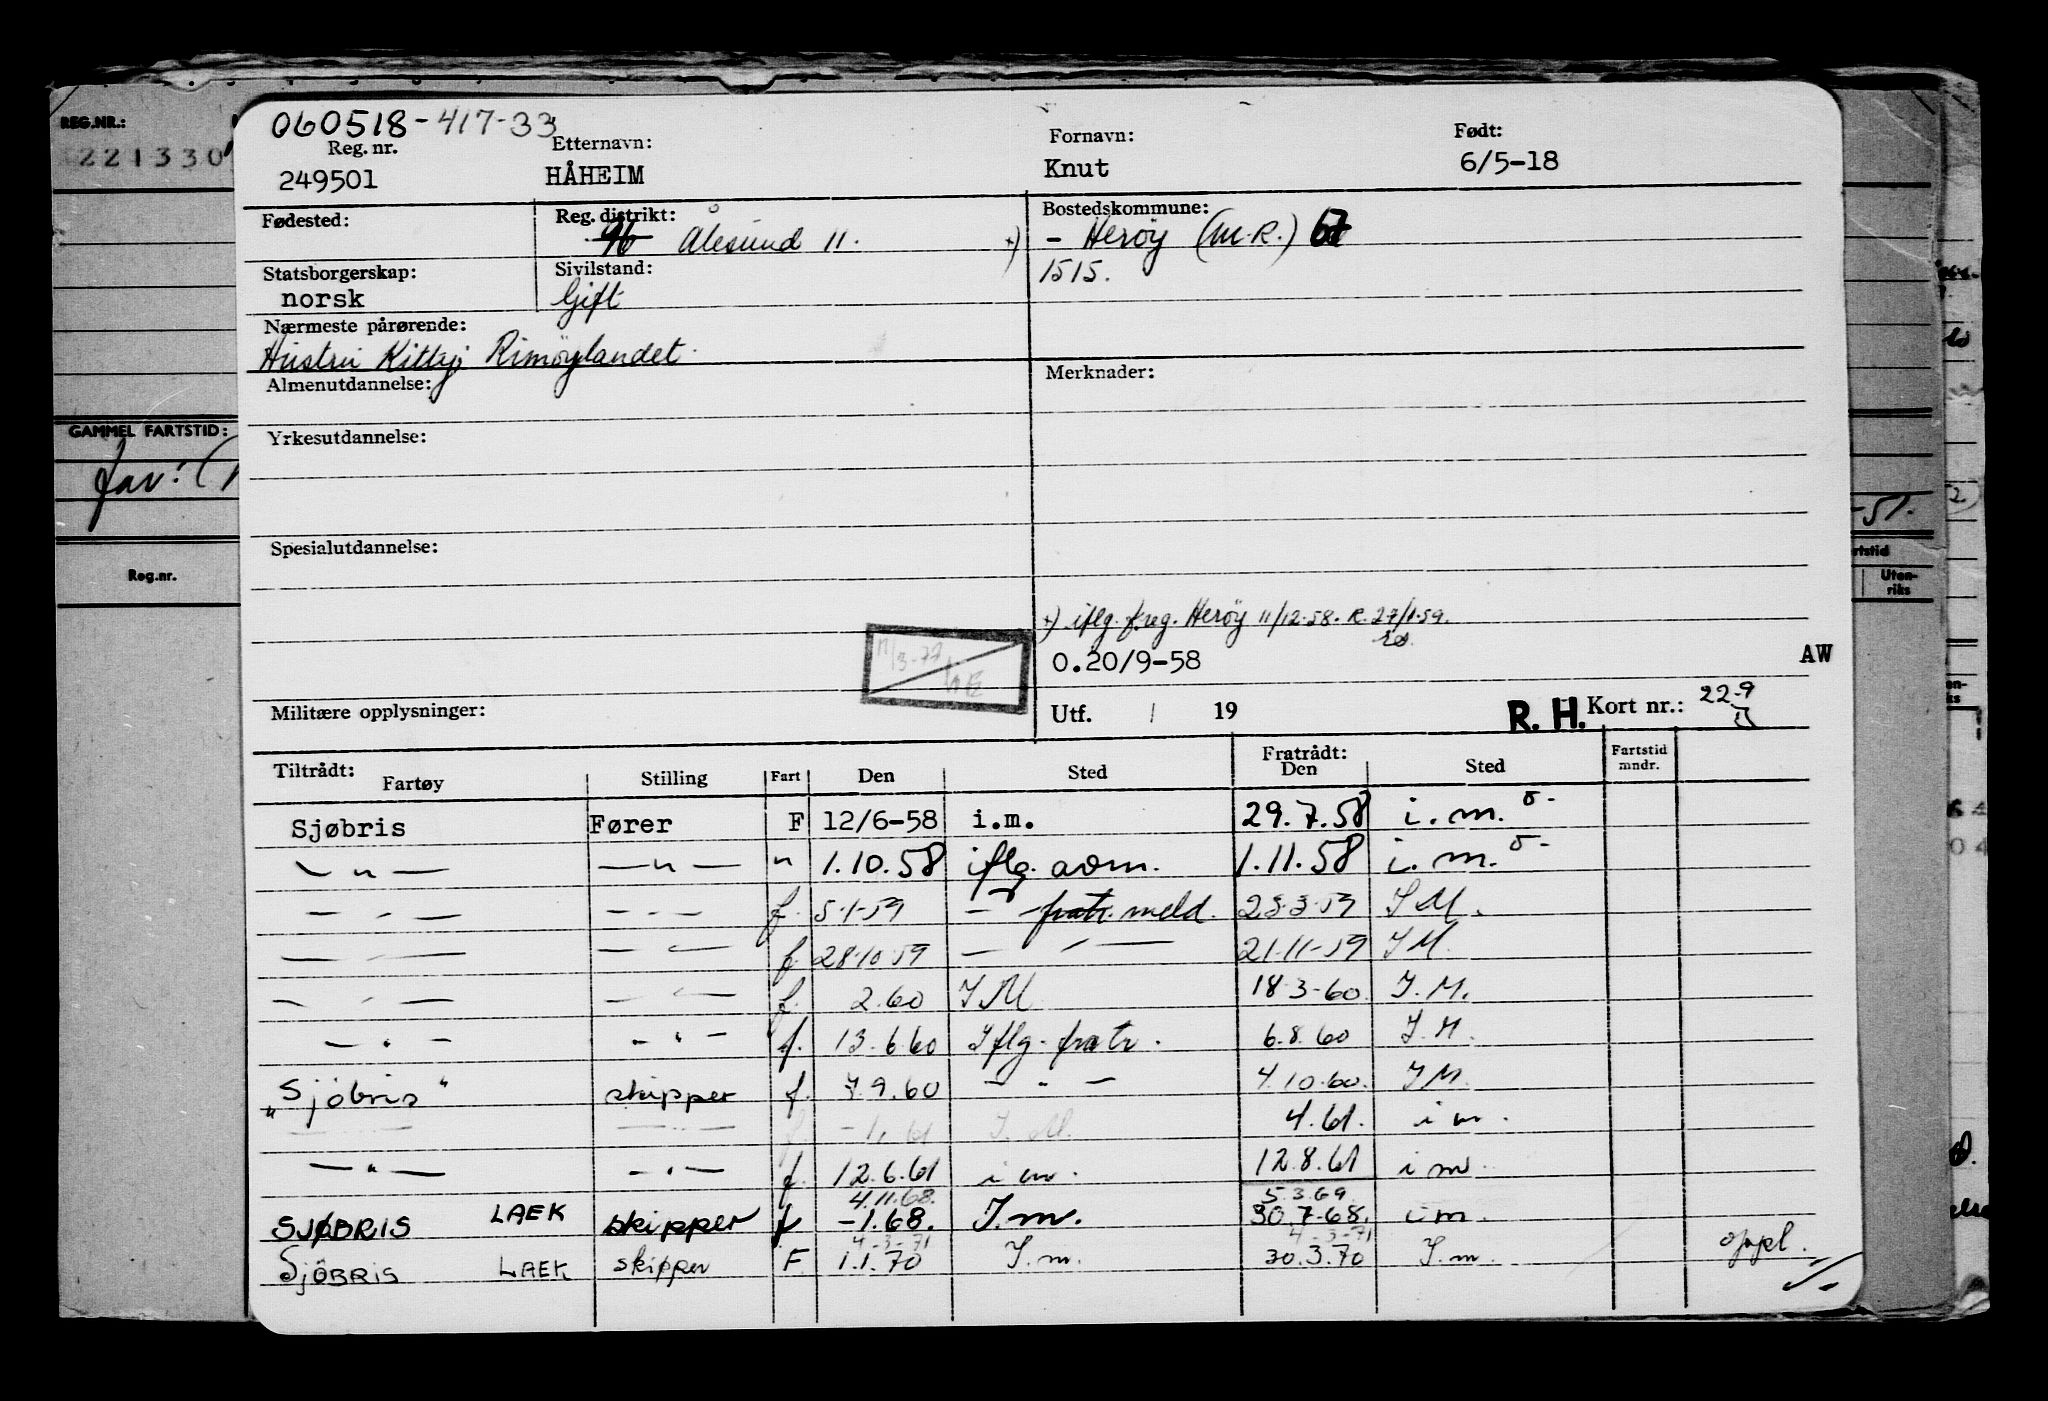 060518-417-33
Reg. nr. Etternavn: Fornavn: Født:
249501 HÅHEIM Knut 6/5-18
Fødested: Reg. distrikt: Bostedskommune:
96 Ålesund 11. +) - Herøy (M.R.)
1515.
Statsborgerskap: Sivilstand:
norsk Gift
Nærmeste pårørende:
Hustru Kitty, Rimøylandet.
Almenutdannelse: Merknader:
Yrkesutdannelse:
Spesialutdannelse:
+) iflg. f.reg. Herøy 11/12-58. R. 27/1-59.
O.20/9-58 AW
11/3-77
Militære opplysninger: Utf. / 19 R. H. Kort nr.: 22-9
Tiltrådt: Fratrådt:
Fartøy Stilling Fart Den Sted Den Sted Fartstid mndr.
Sjøbris Fører F 12/6-58 i.m. 29.7.58 i.m. 5-
— " — — " — " 1.10.58 iflg. aom. 1.11.58 i.m. 5-
— " — — " — f. 5-1-59 — fratr. meld. 25-3-59 I M.
— " — — " — f. 28-10-59 — " — 21-11-59 I M.
— " — — " — f. 2.60 I M 18-3-60 I. M.
— " — — " — f. 13.6.60 Iflg. fratr. 6.8.60 I. M.
"Sjøbris" skipper f. 7.9.60 — " — 4.10.60. I M.
— " — — " — f. -1.61 I. M. 4.61. i m.
— " — — " — f. 12.6.61 i m. 12.8.61 i m.
4.11.68. 5.3.69
SJØBRIS LAEK skipper f -1.68. I.m. 30.7-68. i m.
4-3-71 4-3-71
SJØBRIS LAEK skipper F 1.1.70 I.m. 30.3.70 I.m. oppl.
REG.NR.:
221330
GAMMEL FARTSTID:
fav:
Reg.nr.
-51.
rtstid
Uten-
riks